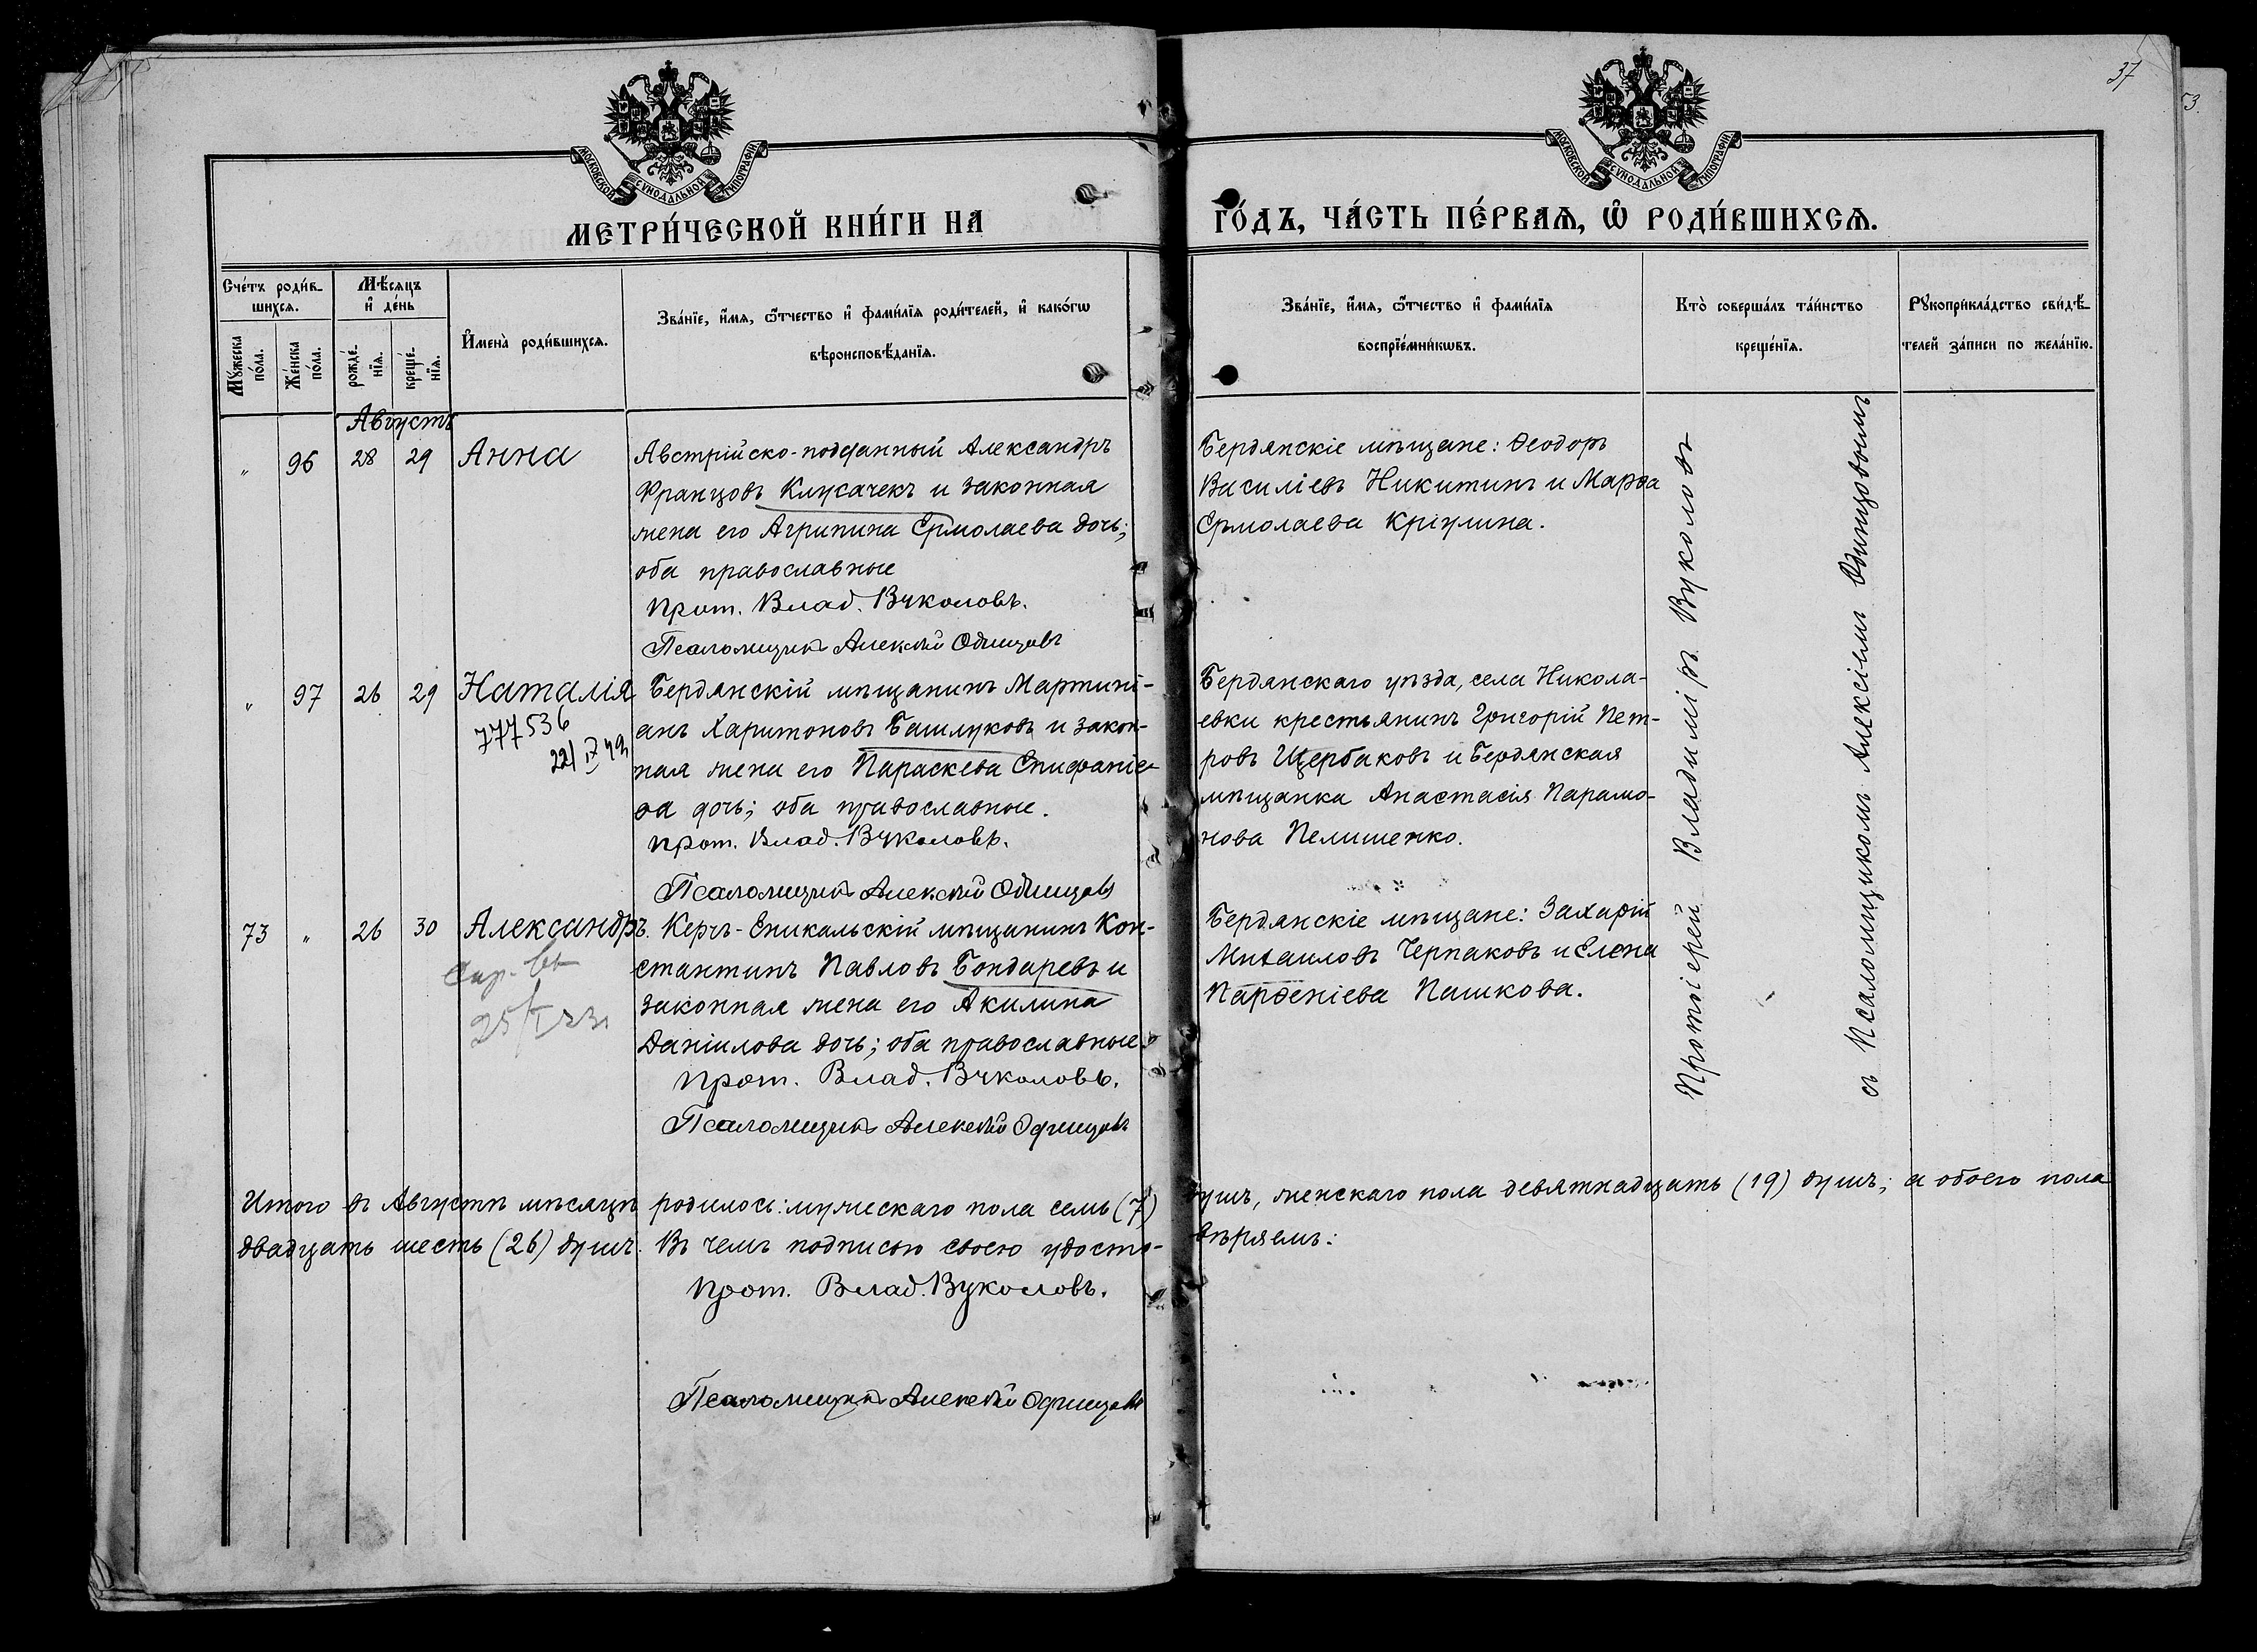 37
53.
МОСКОВСКОЙ СѴНОДАЛЬНОЙ ТИПОГРАФІИ
МОСКОВСКОЙ СѴНОДАЛЬНОЙ ТИПОГРАФІИ
МЕТРИ́ЧЕСКОЙ КНИ́ГИ НА
ГО́ДЪ, ЧА́СТЬ ПЕ́РВАѦ, Ѿ РОДИ́ВШИХСѦ.
Сче́тъ роди́в-
шихся.
Мꙋ́жеска
по́ла.
Же́нска
по́ла.
Мѣ́сяцъ
и҆ де́нь
рожде́-
нїя.
креще́-
нїя.
И҆мена̀ роди́вшихся.
Зва́нїе, и҆́мя, ѻ҆́тчество и҆ фами́лїя роди́телей, и҆ како́гѡ
вѣроисповѣ́данїя.
Зва́нїе, и҆́мя, ѻ҆́тчество и҆ фами́лїя
воспрїе́мникѡвъ.
Кто̀ соверша́лъ та́инство
креще́нїя.
Рꙋкоприкла́дство свидѣ́-
телей за́писи по жела́нїю.
Августъ
" 96 28 29 Анна
Австрійско-подданный Александръ
Францовъ Клусачекъ и законная
жена его Агрипина Ермолаева дочь;
оба православные
Прот. Влад. Вуколовъ.
Псаломщикъ Алексѣй Одинцовъ
Бердянскіе мѣщане: Ѳеодоръ
Василіевъ Никитинъ и Марѳа
Ермолаева Кріулина.
" 97 26 29 Наталія
777536
22/IX 49
Бердянскій мѣщанинъ Мартині-
анъ Харитоновъ Башлуковъ и закон-
ная жена его Параскева Епифаніе-
ва дочь; оба православные.
Прот. Влад. Вуколовъ.
Псаломщикъ Алексѣй Одинцовъ
Бердянскаго уѣзда, села Никола-
евки крестьянинъ Григорій Пет-
ровъ Щербаковъ и Бердянская
мѣщанка Анастасія Парамо-
нова Пелишенко.
73 " 26 30 Александръ.
25/I 23
Керчь-Еникальскій мѣщанинъ Кон-
стантинъ Павловъ Бондаревъ и
законная жена его Акилина
Даніилова дочь; оба православные.
Прот. Влад. Вуколовъ.
Псаломщикъ Алексѣй Одинцовъ
Бердянскіе мѣщане: Захарій
Михаиловъ Черпаковъ и Елена
Парѳеніева Пашкова.
Протоіерей Владиміръ Вуколовъ
съ Псаломщикомъ Алексіемъ Одинцовымъ
Итого въ Августѣ мѣсяцѣ родилось: мужескаго пола семь (7) душъ, женскаго пола девятнадцать (19) душъ; а обоего пола
двадцать шесть (26) душъ. Въ чемъ подписью своею удосто- вѣряемъ:
Прот. Влад. Вуколовъ.
Псаломщикъ Алексѣй Одинцовъ